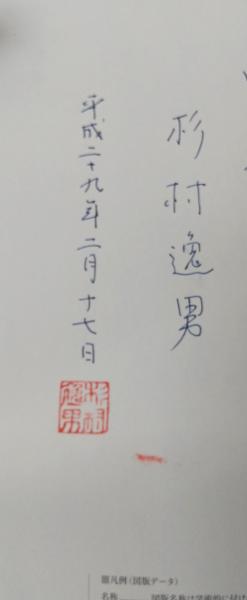 杉村逸男
平成二十九年二月十七日
杉村逸男
凡例(図版データ)